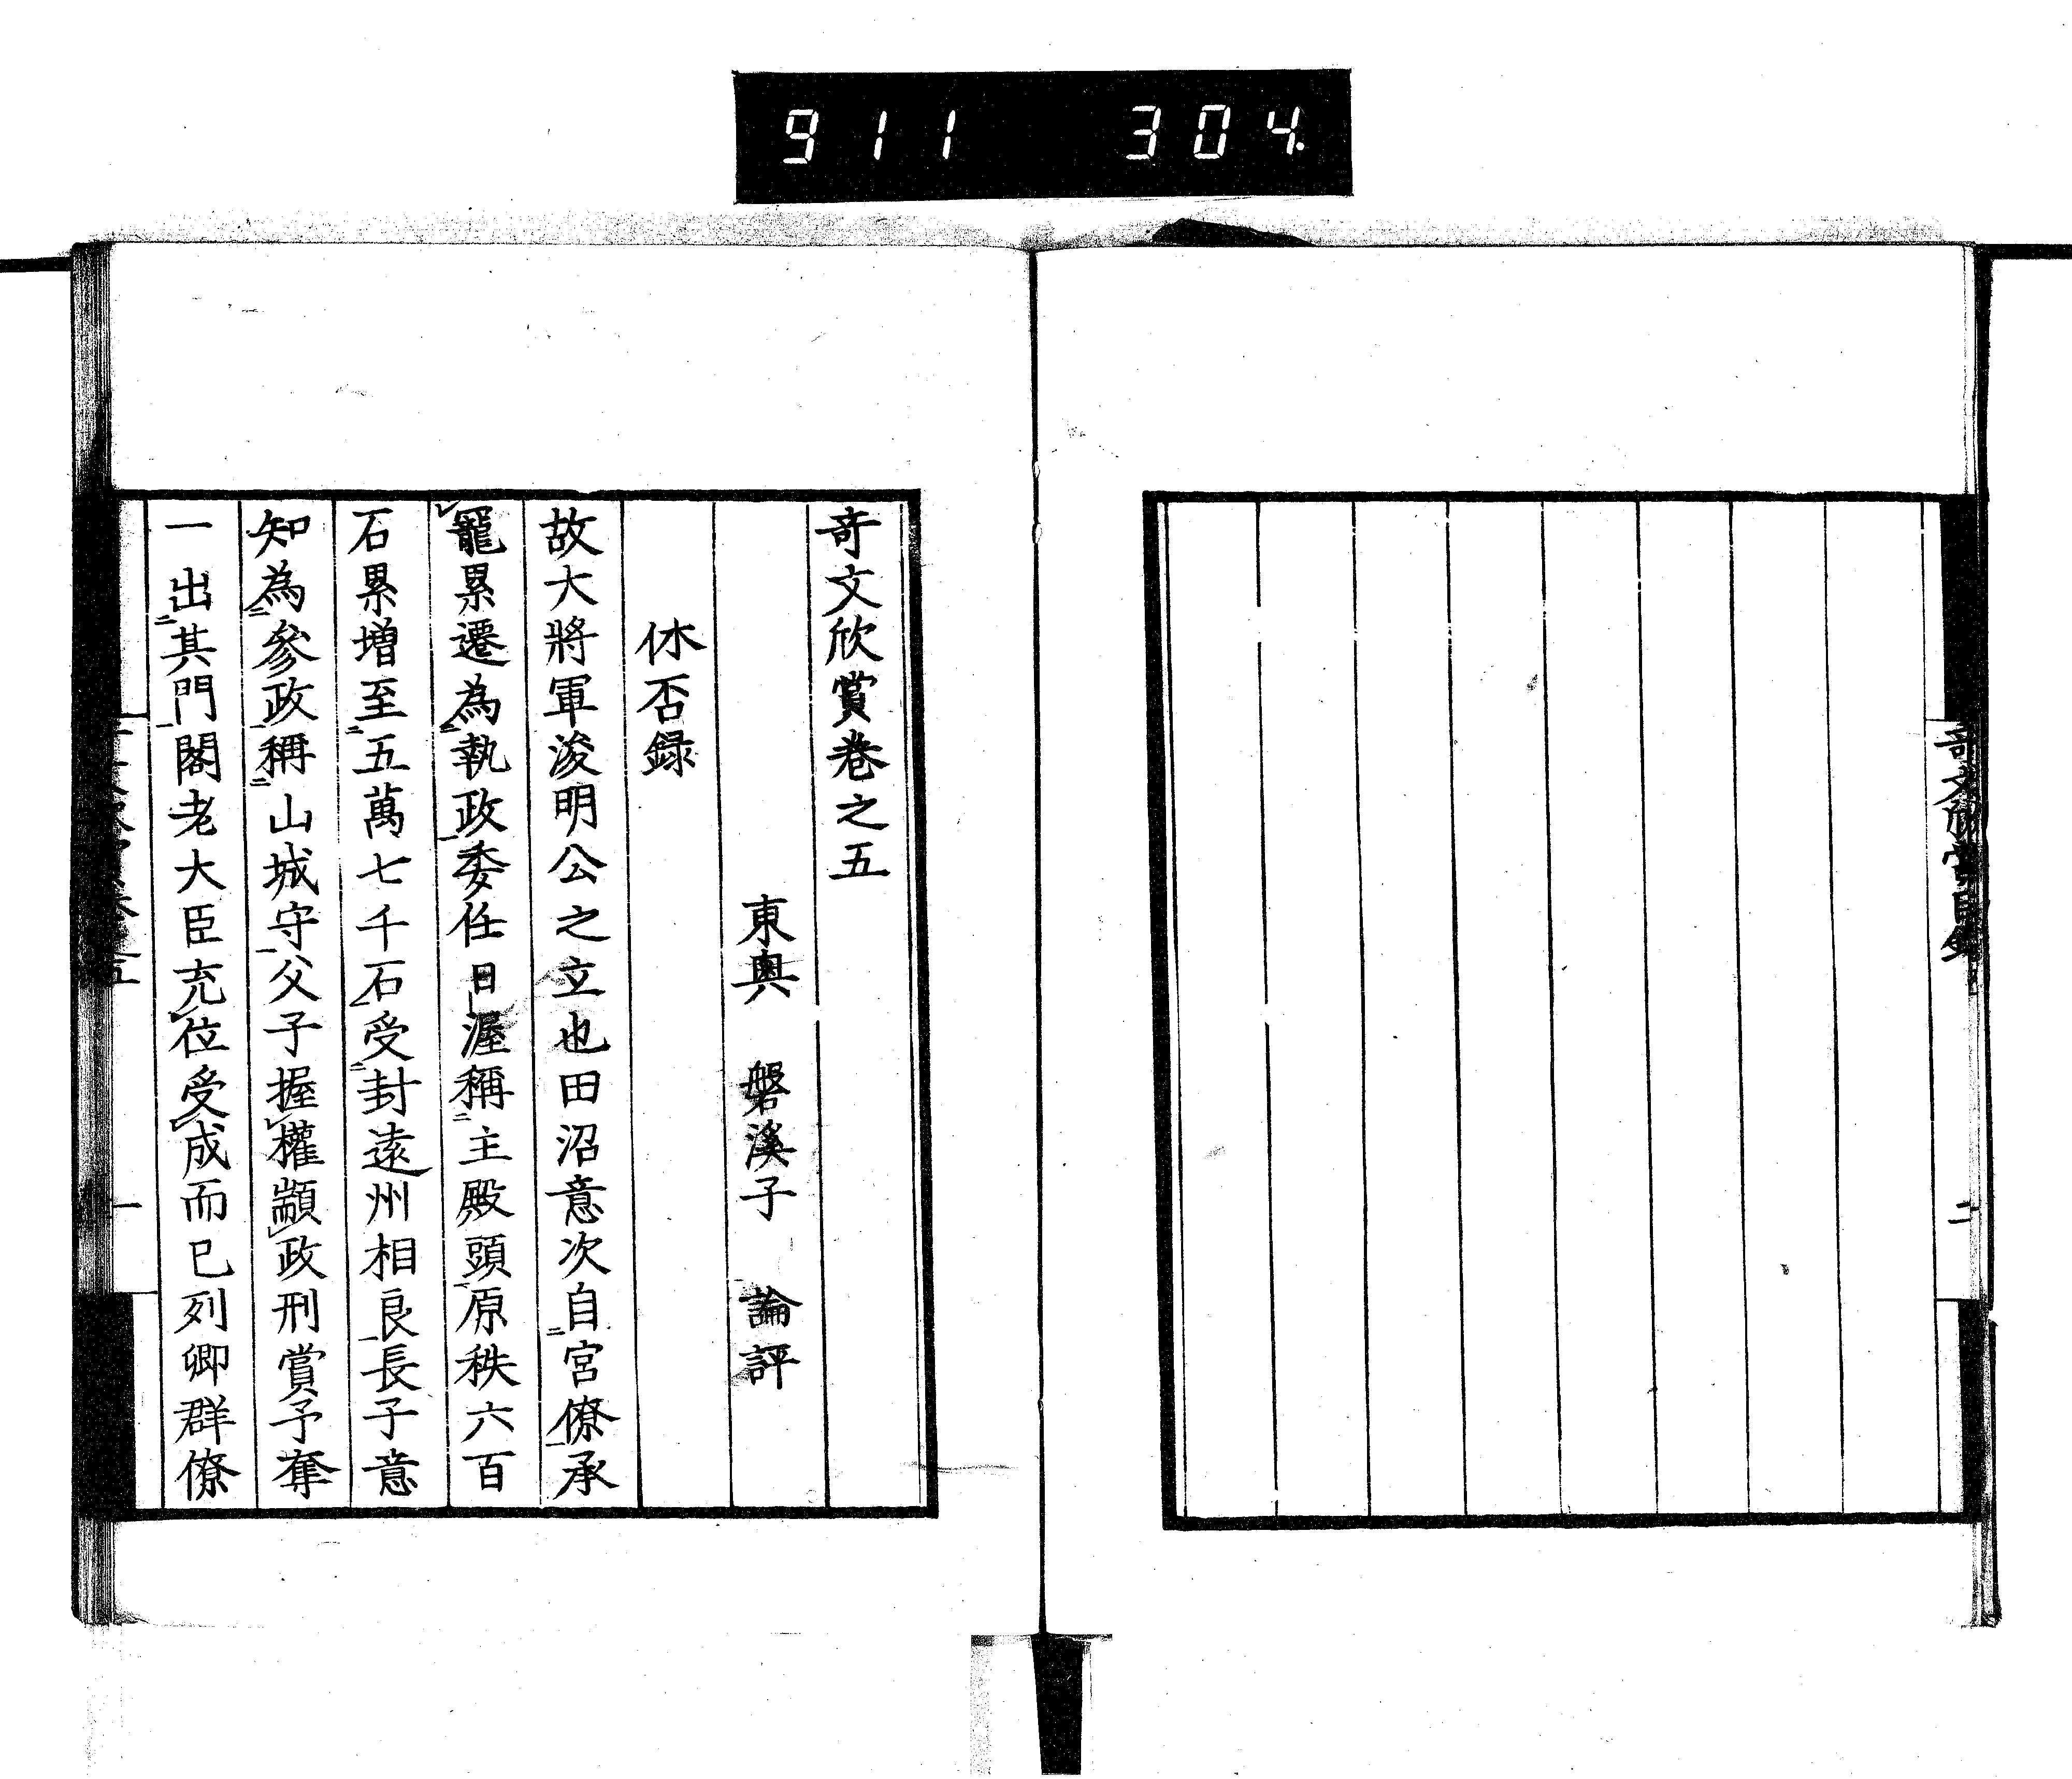 911 304
奇文欣賞目録
二
奇文欣賞巻之五
東奥 磐溪子 論評
休否録
故大將軍浚明公之立也田沼意次自宮僚承
寵累遷為執政委任日渥稱主殿頭原秩六百
石累増至五萬七千石受封遠州相良長子意
知為參政稱山城守父子握權顓政刑賞予奪
一出其門閣老大臣充位受成而已列卿群僚
一